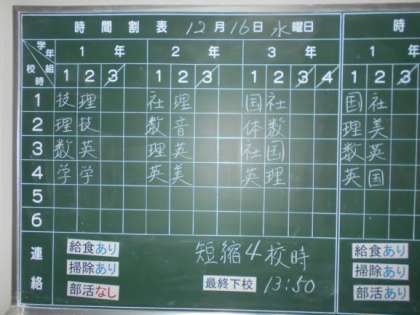 時間割表 12月16日 水曜日 時
学年 組 校時 1年 2年 3年 1
1 2 3 1 2 3 1 2 3 4 1 2 3
1 技 理 社 理 国 社 国 社
2 理 技 数 音 体 数 理 美
3 数 英 理 英 社 国 数 英
4 学 学 英 美 英 理 英 国
5
6
連絡
給食あり 短縮4校時 給食あり
掃除あり 掃除あり
部活なし 最終下校 13:50 部活あり